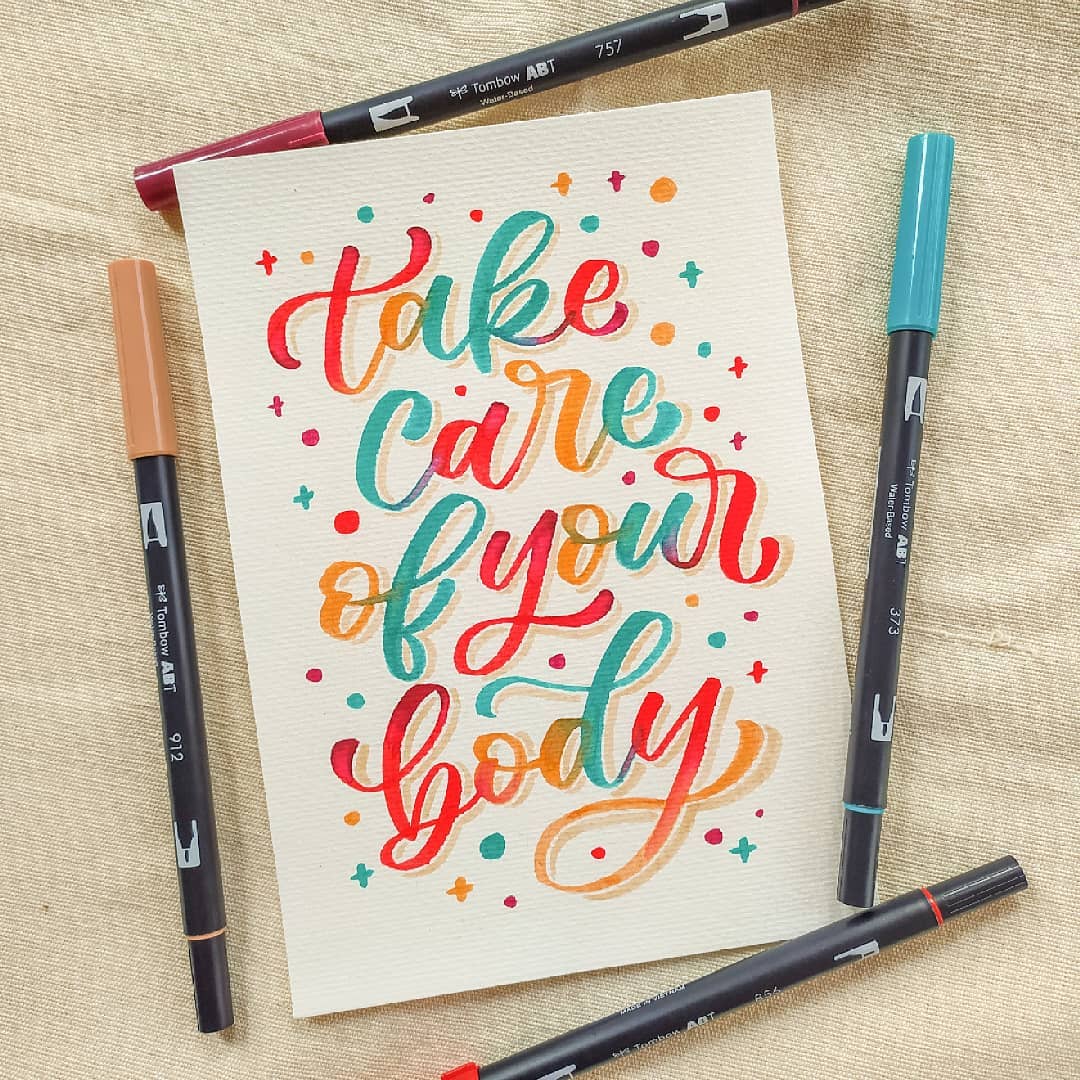 757
Tombow ABT
Water-Based
take
care
of your
body
Tombow ABT
912
Tombow ABT
Water-Based
373
MADE IN VIETNAM
Tombow ABT